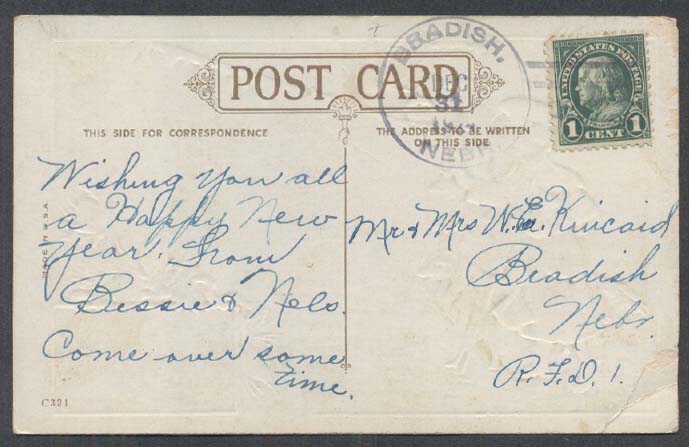 POST CARD
THIS SIDE FOR CORRESPONDENCE
THE ADDRESS TO BE WRITTEN
ON THIS SIDE
BRADISH,
DEC
31
NEBR
UNITED STATES POSTAGE
1 CENT 1
Wishing you all
a Happy New
Year. From
Bessie & Nels.
Come over some
time.
Mr & Mrs W. E. Kincaid
Bradish
Nebr.
R.F.D. 1.
MADE IN U.S.A.
C321